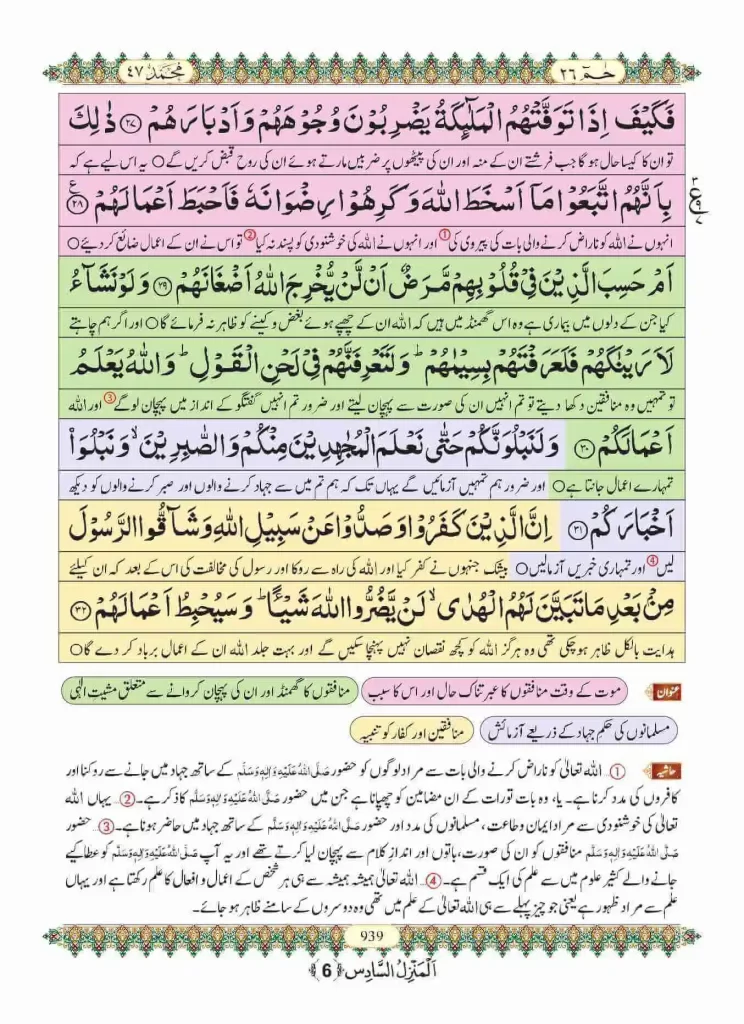 حٰمٓ ٢٦
محمد ٤٧
فَكَيْفَ اِذَا تَوَفَّتْهُمُ الْمَلٰٓىِٕكَةُ يَضْرِبُوْنَ وُجُوْهَهُمْ وَ اَدْبَارَهُمْ ﴿۲۷﴾ ذٰلِكَ
تو ان کا کیسا حال ہوگا جب فرشتے ان کے منہ اور ان کی پیٹھوں پر ضربیں مارتے ہوئے ان کی روح قبض کریں گے ○ یہ اس لیے ہے کہ
بِاَنَّهُمُ اتَّبَعُوْا مَاۤ اَسْخَطَ اللّٰهَ وَ كَرِهُوْا رِضْوَانَهٗ فَاَحْبَطَ اَعْمَالَهُمْ ﴿۲۸﴾ ع
انہوں نے اللہ کو ناراض کرنے والی بات کی پیروی کی ① اور انہوں نے اللہ کی خوشنودی کو پسند نہ کیا ② تو اس نے ان کے اعمال ضائع کردیئے ○
اَمْ حَسِبَ الَّذِيْنَ فِيْ قُلُوْبِهِمْ مَّرَضٌ اَنْ لَّنْ يُّخْرِجَ اللّٰهُ اَضْغَانَهُمْ ﴿۲۹﴾ وَ لَوْ نَشَآءُ
کیا جن کے دلوں میں بیماری ہے وہ اس گھمنڈ میں ہیں کہ اللہ ان کے چھپے ہوئے بغض و کینے کو ظاہر نہ فرمائے گا ○ اور اگر ہم چاہتے
لَاَرَيْنٰكَهُمْ فَلَعَرَفْتَهُمْ بِسِيْمٰىهُمْ ؕ وَ لَتَعْرِفَنَّهُمْ فِيْ لَحْنِ الْقَوْلِ ؕ وَ اللّٰهُ يَعْلَمُ
تو تمہیں وہ منافقین دکھا دیتے تو تم انہیں ان کی صورت سے پہچان لیتے اور ضرور تم انہیں گفتگو کے انداز میں پہچان لوگے ③ اور اللہ
اَعْمَالَكُمْ ﴿۳۰﴾ وَ لَنَبْلُوَنَّكُمْ حَتّٰى نَعْلَمَ الْمُجٰهِدِيْنَ مِنْكُمْ وَ الصّٰبِرِيْنَ ۙ وَ نَبْلُوَاۡ
تمہارے اعمال جانتا ہے ○ اور ضرور ہم تمہیں آزمائیں گے یہاں تک کہ ہم تم میں سے جہاد کرنے والوں اور صبر کرنے والوں کو دیکھ
اَخْبَارَكُمْ ﴿۳۱﴾ اِنَّ الَّذِيْنَ كَفَرُوْا وَ صَدُّوْا عَنْ سَبِيْلِ اللّٰهِ وَ شَآقُّوا الرَّسُوْلَ
لیں ④ اور تمہاری خبریں آزمالیں ○ بیشک جنہوں نے کفر کیا اور اللہ کی راہ سے روکا اور رسول کی مخالفت کی اس کے بعد کہ ان کیلئے
مِنْۢ بَعْدِ مَا تَبَيَّنَ لَهُمُ الْهُدٰى ۙ لَنْ يَّضُرُّوا اللّٰهَ شَيْـًٔا ؕ وَ سَيُحْبِطُ اَعْمَالَهُمْ ﴿۳۲﴾
ہدایت بالکل ظاہر ہوچکی تھی وہ ہرگز اللہ کو کچھ نقصان نہیں پہنچا سکیں گے اور بہت جلد اللہ ان کے اعمال برباد کر دے گا ○
عنوان موت کے وقت منافقوں کا عبرتناک حال اور اس کا سبب منافقوں کا گھمنڈ اور ان کی پہچان کروانے سے متعلق مشیتِ الٰہی
مسلمانوں کی حکمِ جہاد کے ذریعے آزمائش منافقین اور کفار کو تنبیہ
حاشیہ ①... اللہ تعالیٰ کو ناراض کرنے والی بات سے مراد لوگوں کو حضور صَلَّى اللهُ عَلَيْهِ وَاٰلِهٖ وَسَلَّمَ کے ساتھ جہاد میں جانے سے روکنا اور
کافروں کی مدد کرنا ہے۔ یا، وہ بات تورات کے ان مضامین کو چھپانا ہے جن میں حضور صَلَّى اللهُ عَلَيْهِ وَاٰلِهٖ وَسَلَّمَ کا ذکر ہے۔ ②... یہاں اللہ
تعالیٰ کی خوشنودی سے مراد ایمان و طاعت، مسلمانوں کی مدد اور حضور صَلَّى اللهُ عَلَيْهِ وَاٰلِهٖ وَسَلَّمَ کے ساتھ جہاد میں حاضر ہونا ہے۔ ③... حضور
صَلَّى اللهُ عَلَيْهِ وَاٰلِهٖ وَسَلَّمَ منافقوں کو ان کی صورت، باتوں اور اندازِ کلام سے پہچان لیا کرتے تھے اور یہ آپ صَلَّى اللهُ عَلَيْهِ وَاٰلِهٖ وَسَلَّمَ کو عطا کیے
جانے والے کثیر علوم میں سے علم کی ایک قسم ہے۔ ④... اللہ تعالیٰ ہمیشہ ہمیشہ سے ہی ہر شخص کے اعمال و افعال کا علم رکھتا ہے اور یہاں
علم سے مراد ظہور ہے یعنی جو چیز پہلے سے ہی اللہ تعالیٰ کے علم میں تھی وہ دوسروں کے سامنے ظاہر ہو جائے۔
939
اَلْمَنْزِلُ السَّادِس ﴿6﴾